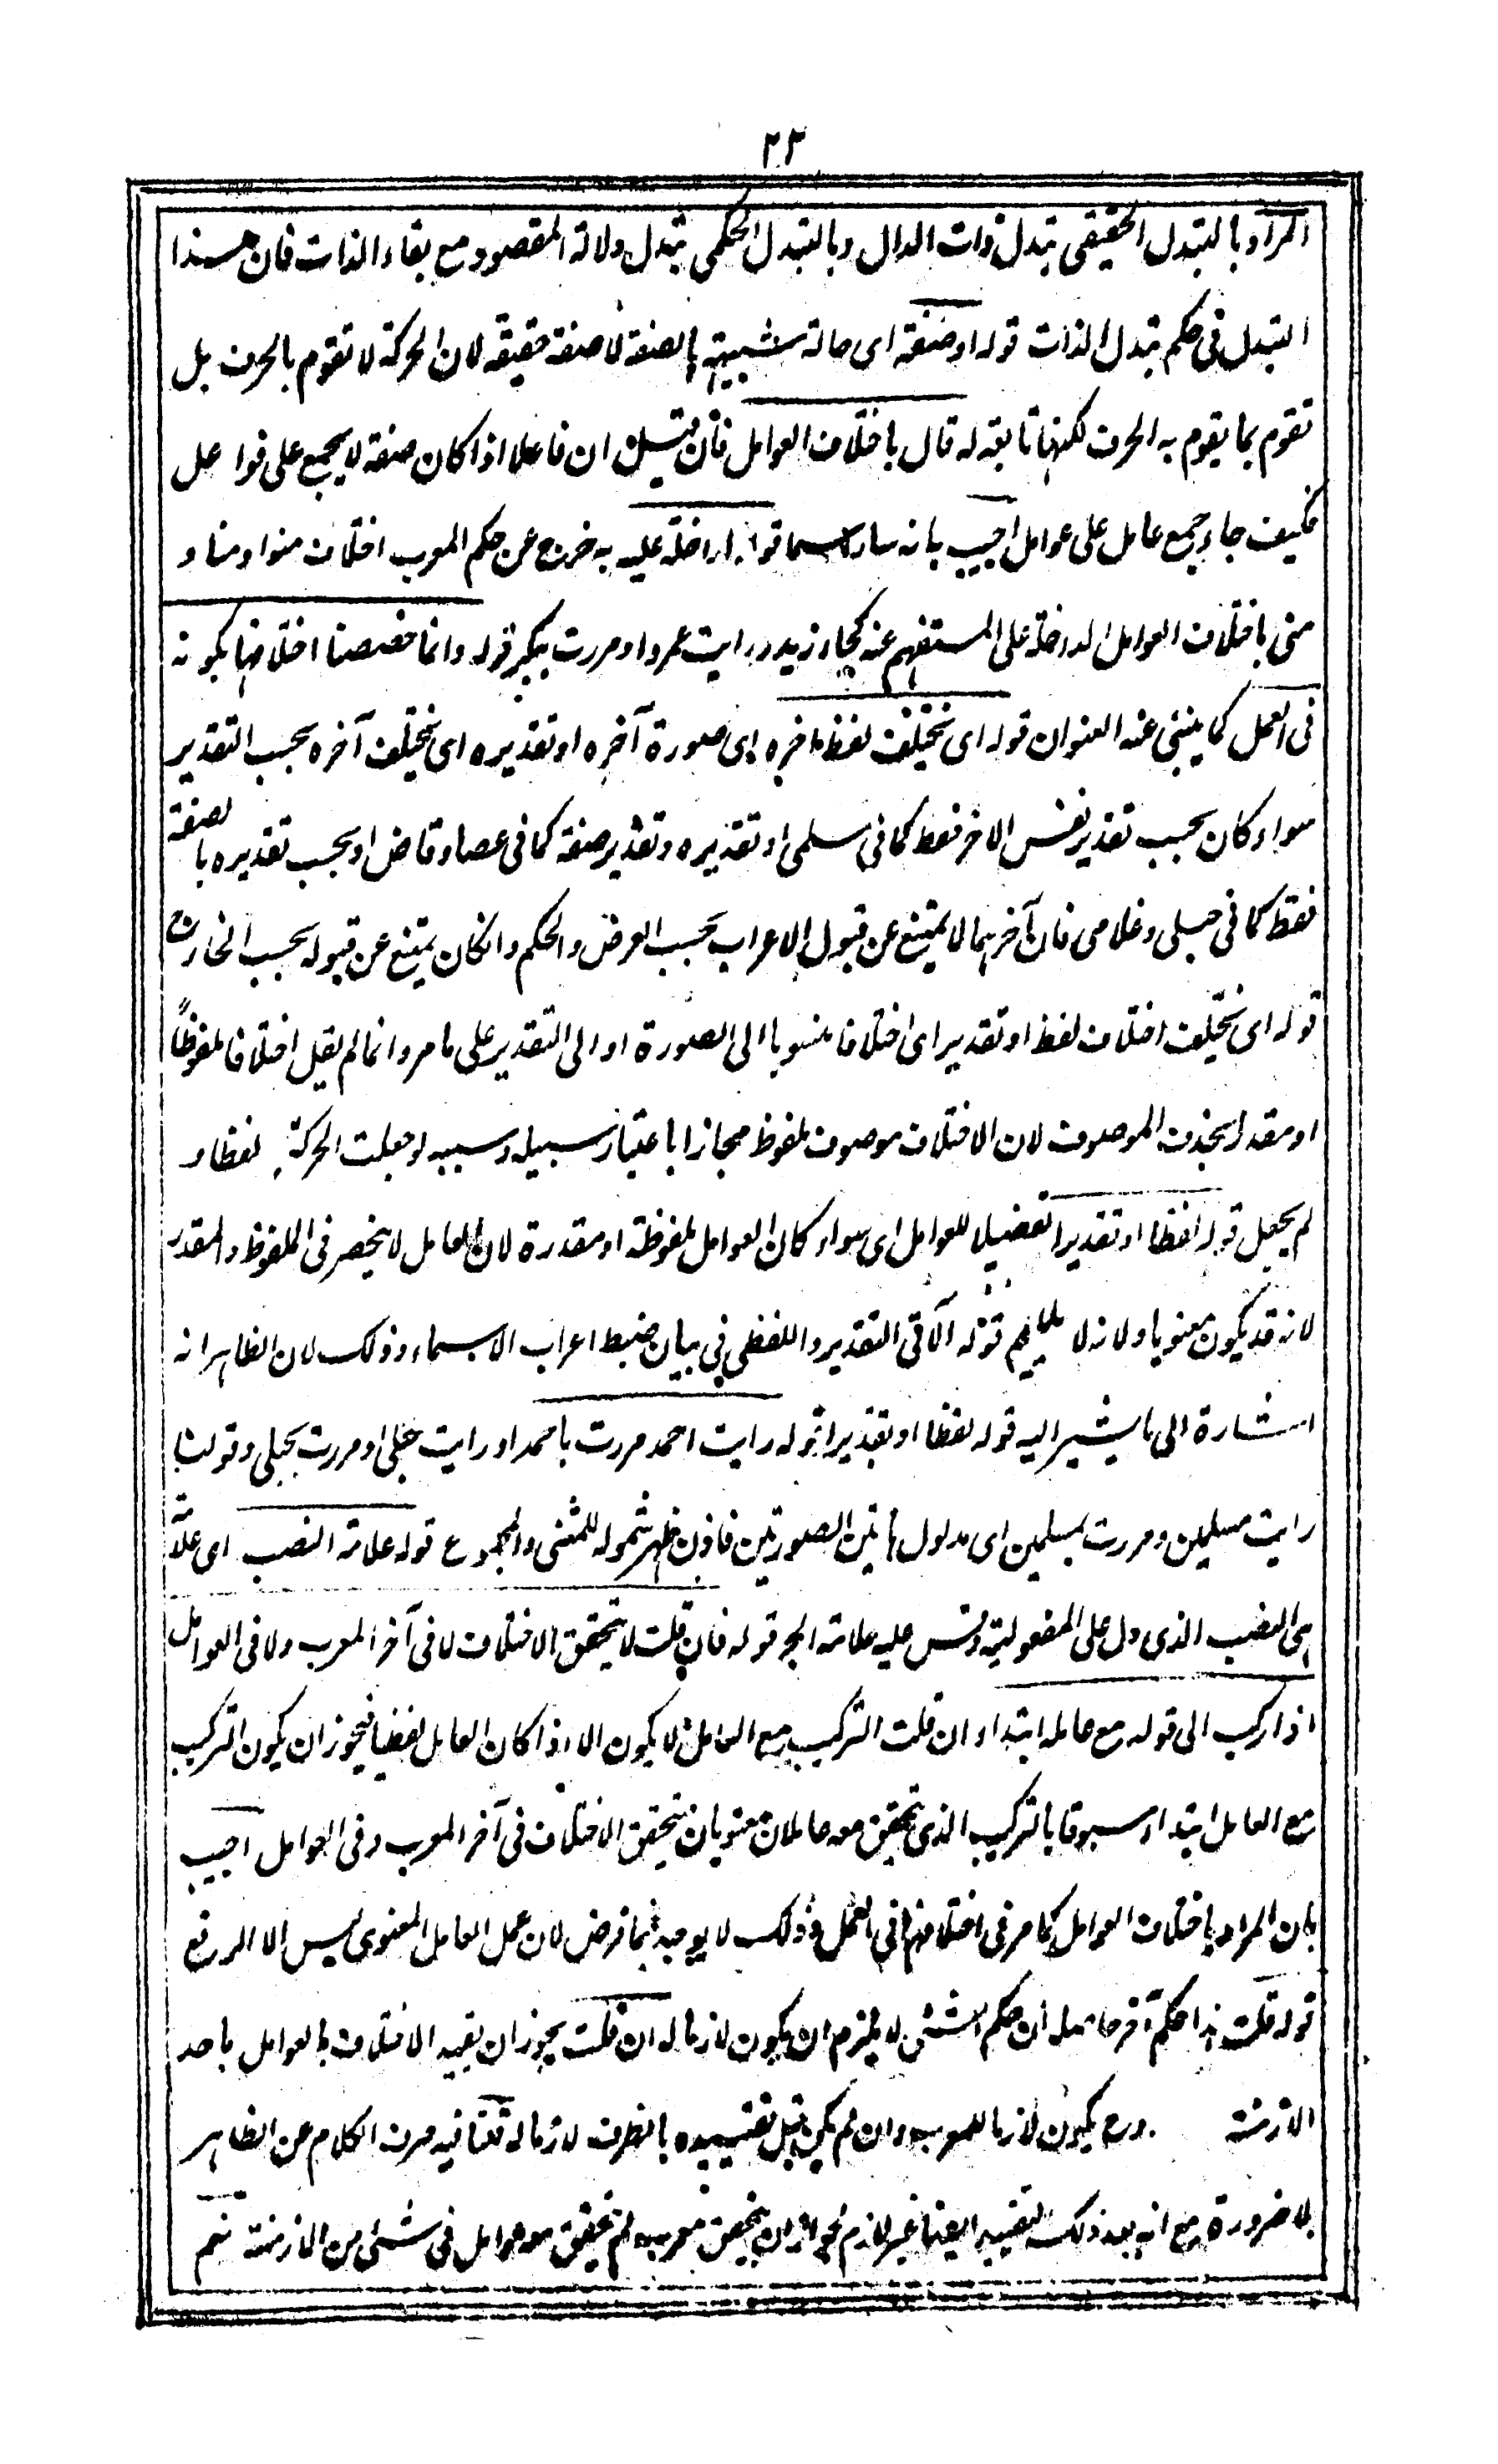 ٢٣
المراد بالتبدل الحقيقى تبدل ذات الدال وبالتبدل الحكمى تبدل دلالة المقصود مع بقاء الذات فان هذا
التبدل فى حكم تبدل الذات قوله او صفة اى حالة شبيهة بالصفة لا صفة حقيقة لان الحركة لا تقوم بالحرف بل
تقوم بما يقوم به الحرف لكنها تابعة له قال باختلاف العوامل فان قيل ان فاعلا اذا كان صفة لا يجمع على فواعل
فكيف جاء جمع عامل على عوامل اجيب بانه صار اسما قوله الداخلة عليه به خرج عن حكم المعرب اختلاف منوا ومنا و
منى باختلاف العوامل الداخلة على المستفهم عنه كجاء زيد ورايت عمروا ومررت ببكر قوله وانما خصصنا اختلافها بكونه
فى العمل كما ينبئ عنه العنوان قوله اى يختلف لفظ آخره اى صورة آخره او تقديره اى يختلف آخره بحسب التقدير
سواء كان بحسب تقدير نفس الاخر فقط كما فى مسلمى او تقديره وتقدير صفة كما فى عصا وقاض او بحسب تقديره بالصفة
فقط كما فى حبلى وغلامى فان آخرهما لا يمتنع عن قبول الاعراب بحسب الفرض والحكم وانكان يمتنع عن قبوله بحسب الخارج
قوله اى يختلف اختلاف لفظ او تقدير اى اختلافا منسوبا الى الصورة او الى التقدير على ما مر وانما لم يقل اختلافا ملفوظاً
او مقدرا بحذف الموصوف لان الاختلاف موصوف بلفوظ مجازا باعتبار سبيله وسببه لو جعلت الحركة لفظا و
لم يجعل قوله لفظا او تقديرا تفصيلا للعوامل اى سواء كان العوامل ملفوظة او مقدرة لان العامل لا ينحصر فى الملفوظ والمقدر
لانه قد يكون معنويا ولانه لا يلايم قوله الآتى التقدير واللفظى فى بيان ضبط اعراب الاسماء وذلك لان الظاهر انه
اشارة الى ما يشير اليه قوله لفظا او تقديرا قوله رايت احمد مررت باحمد او رايت حبلى او مررت بحبلى وقولنا
رايت مسلمين ومررت بمسلمين اى مدلول هاتين الصورتين فاذن ظهر شموله للمثنى والمجموع قوله علامة النصب اى علامة
هى النصب الذى دل على المفعولية وقس عليه علامة الجر قوله فان قلت لا يتحقق الاختلاف لا فى آخر المعرب ولا فى العوامل
اذا ركب الى قوله مع عامله ابتداء ان قلت التركيب مع العامل لا يكون الا اذا كان العامل لفظيا فيجوز ان يكون التركيب
مع العامل ابتداء مسبوقا بالتركيب الذى تحقق معه عاملان معنويان فيتحقق الاختلاف فى آخر المعرب وفى العوامل اجيب
بان المراد باختلاف العوامل كما مر فى اختلافها فى العمل وذلك لا يوجد فيما فرض لان عمل العامل المعنوى ليس الا الرفع
قوله قلت هذا حكم آخر حاصله ان حكم الشئ لا يلزم ان يكون لازما له ان قلت يجوز ان يقيد الاختلاف بالعوامل باحد
الازمنة وح يكون لازما للمعرب وان لم يكن قبل تقييده بالظرف لازما له قلنا فيه صرف الكلام عن الظاهر
بلا ضرورة مع انه بعد ذلك التقييد ايضا غير لازم لجواز ان يتحقق معرب لم يتحقق معه عوامل فى شئ من الازمنة نعم